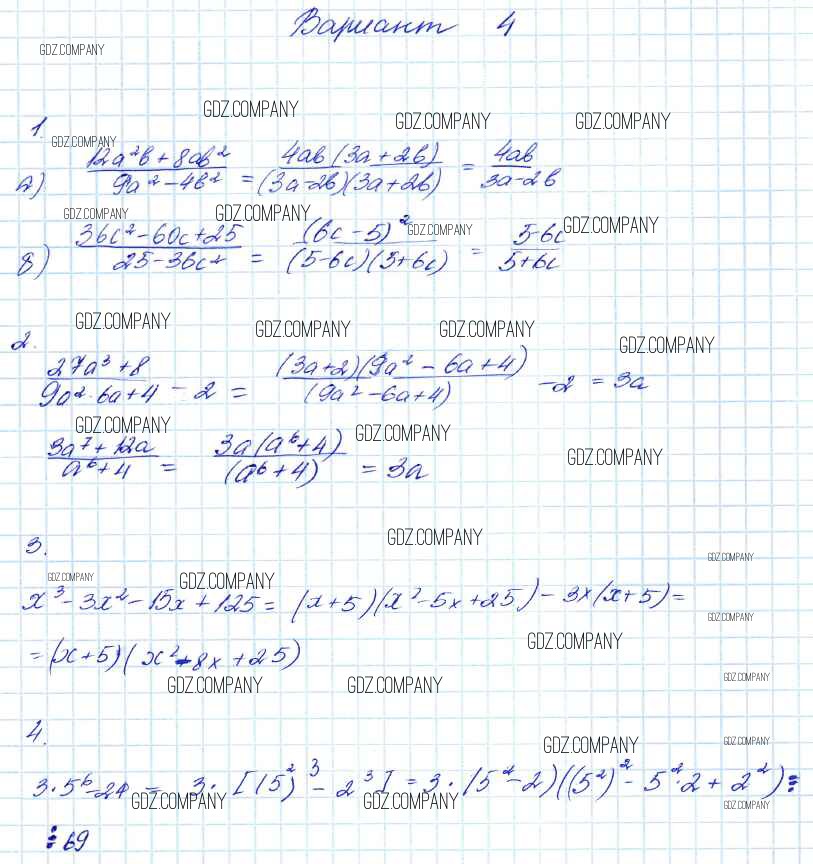 Вариант 4
GDZ.COMPANY
GDZ.COMPANY
GDZ.COMPANY GDZ.COMPANY
1.
GDZ.COMPANY
а) (12a²b + 8ab²)/(9a² - 4b²) = (4ab(3a + 2b))/((3a - 2b)(3a + 2b)) = 4ab/(3a - 2b)
GDZ.COMPANY GDZ.COMPANY GDZ.COMPANY GDZ.COMPANY
б) (36c² - 60c + 25)/(25 - 36c²) = (6c - 5)²/((5 - 6c)(5 + 6c)) = (5 - 6c)/(5 + 6c)
GDZ.COMPANY GDZ.COMPANY GDZ.COMPANY GDZ.COMPANY
2.
(27a³ + 8)/(9a² - 6a + 4) - 2 = ((3a + 2)(9a² - 6a + 4))/(9a² - 6a + 4) - 2 = 3a
GDZ.COMPANY GDZ.COMPANY GDZ.COMPANY
(3a⁷ + 12a)/(a⁶ + 4) = (3a(a⁶ + 4))/(a⁶ + 4) = 3a
GDZ.COMPANY
3.
GDZ.COMPANY
GDZ.COMPANY GDZ.COMPANY
x³ - 3x² - 15x + 125 = (x + 5)(x² - 5x + 25) - 3x(x + 5) =
GDZ.COMPANY
GDZ.COMPANY
= (x + 5)(x² - 8x + 25)
GDZ.COMPANY GDZ.COMPANY GDZ.COMPANY
4.
GDZ.COMPANY GDZ.COMPANY
3·5⁶ - 24 = 3·[(5²)³ - 2³] = 3·(5² - 2)((5²)² - 5²·2 + 2²) ⋮
GDZ.COMPANY GDZ.COMPANY GDZ.COMPANY
⋮ 69